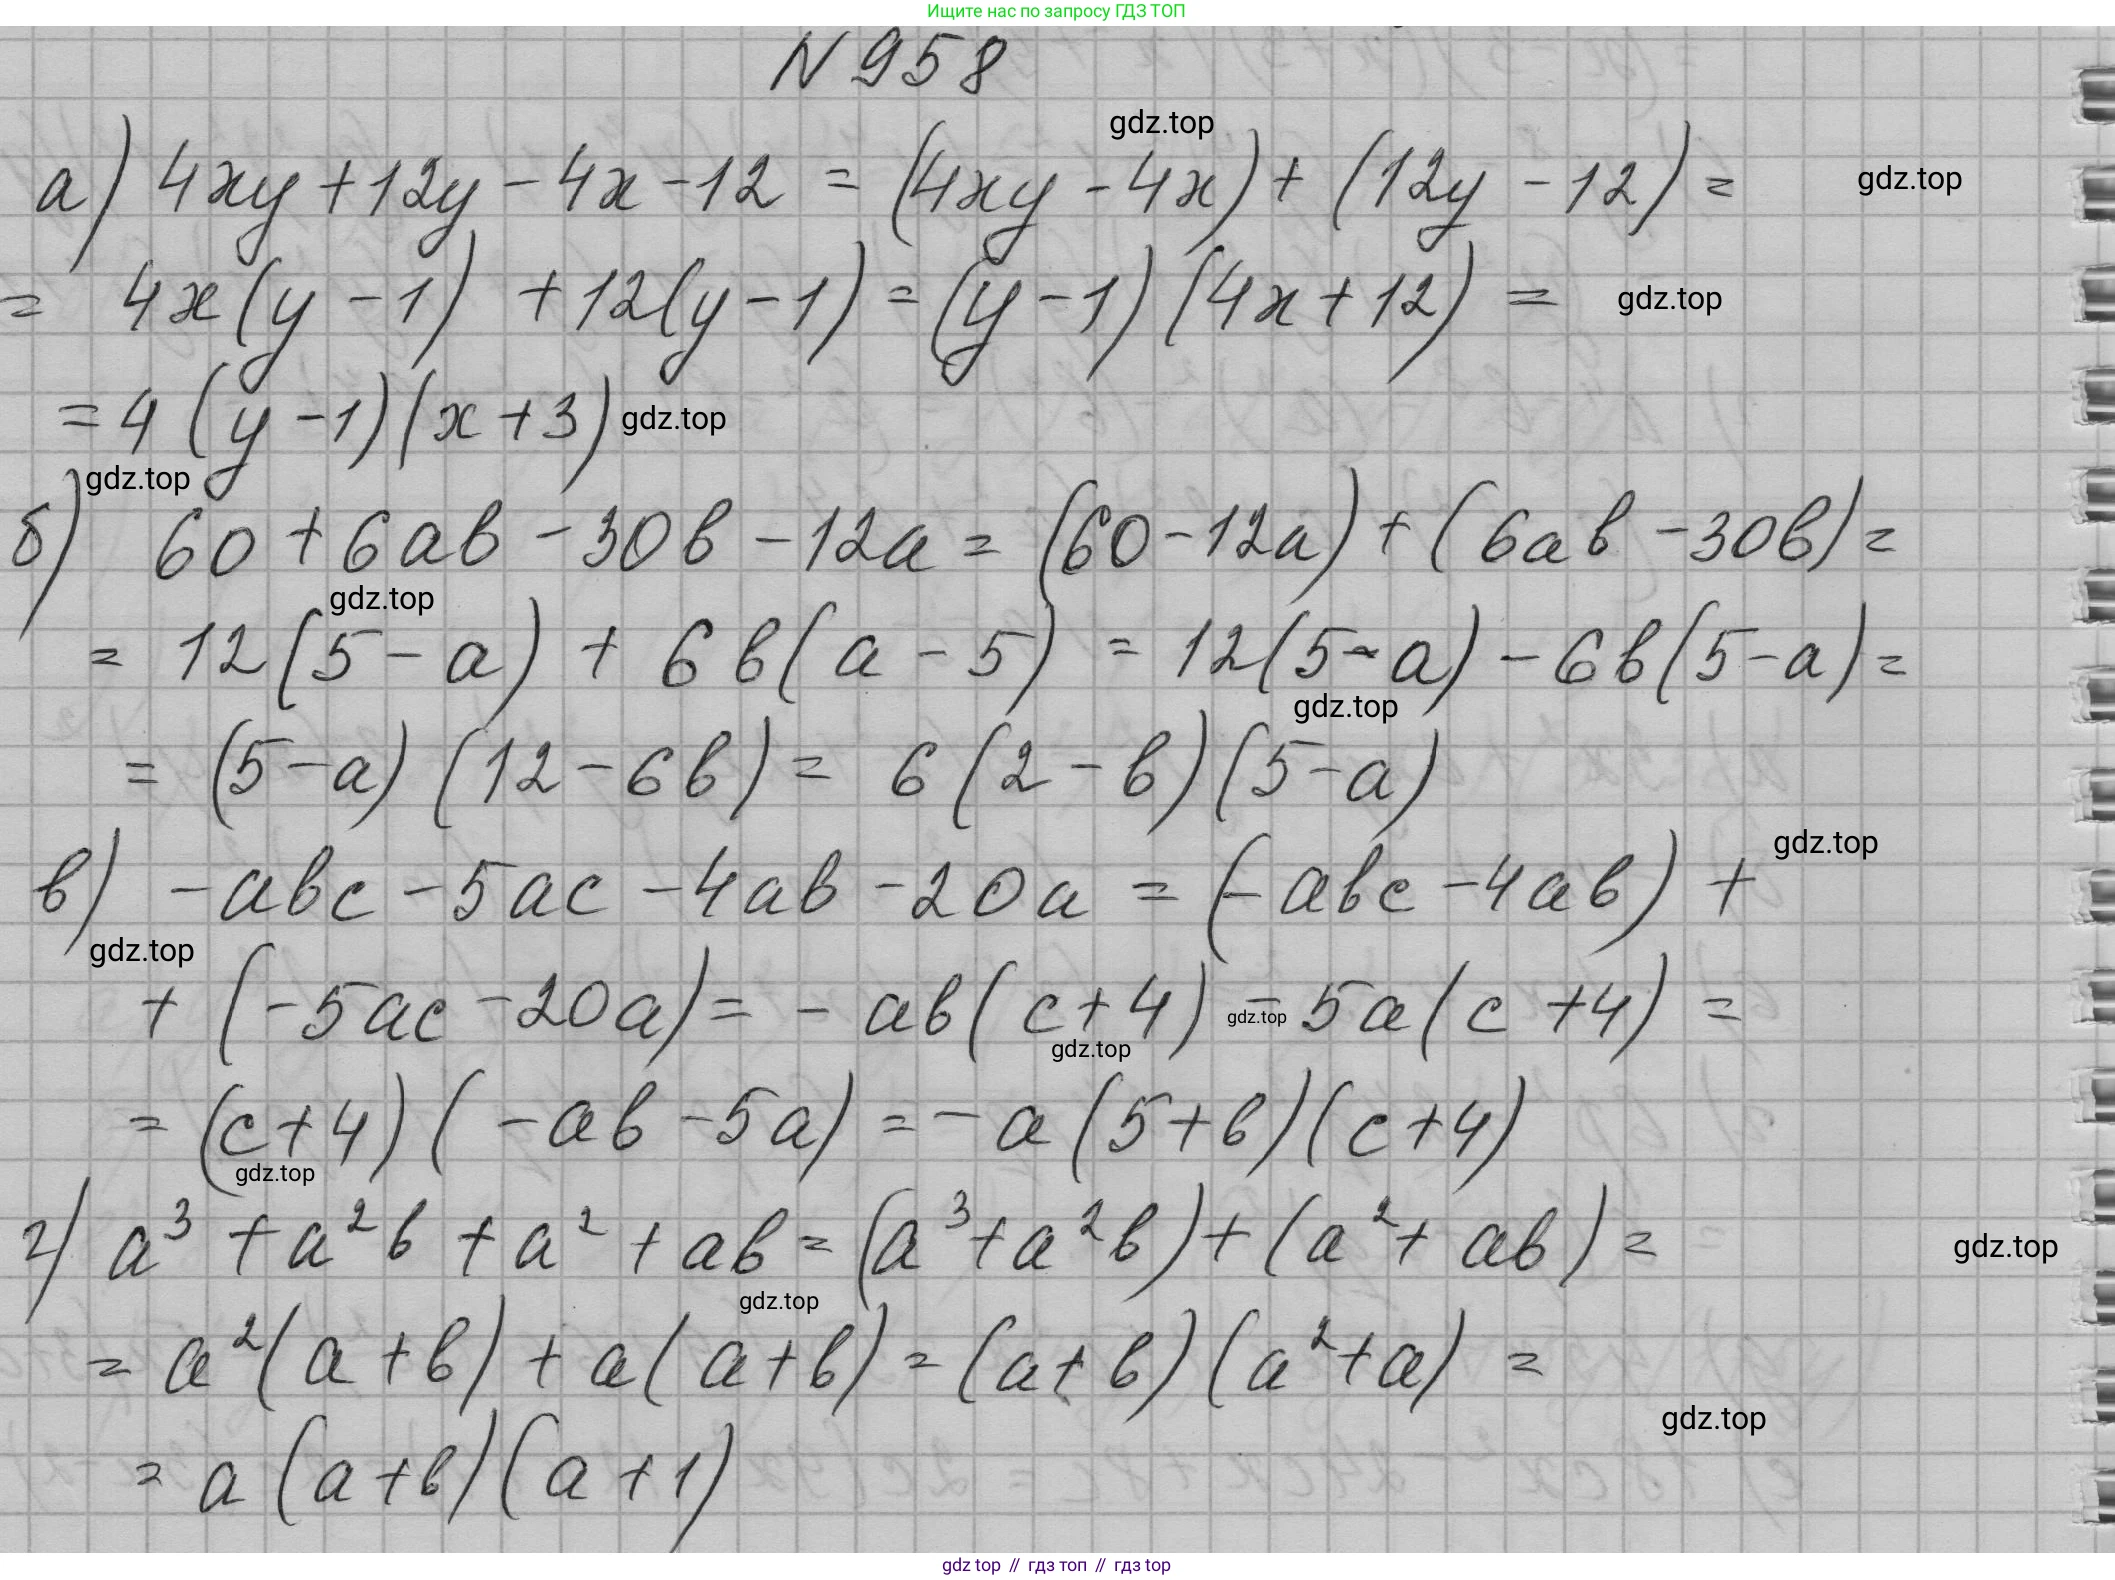 Ищите нас по запросу ГДЗ ТОП
N 958
gdz.top
а) 4xy + 12y - 4x - 12 = (4xy - 4x) + (12y - 12) = gdz.top
= 4x(y - 1) + 12(y - 1) = (y - 1)(4x + 12) = gdz.top
= 4(y - 1)(x + 3) gdz.top
gdz.top
б) 60 + 6ab - 30b - 12a = (60 - 12a) + (6ab - 30b) =
gdz.top
= 12(5 - a) + 6b(a - 5) = 12(5 - a) - 6b(5 - a) =
gdz.top
= (5 - a)(12 - 6b) = 6(2 - b)(5 - a)
gdz.top
в) -abc - 5ac - 4ab - 20a = (-abc - 4ab) +
gdz.top
+ (-5ac - 20a) = -ab(c + 4) - 5a(c + 4) =
gdz.top
gdz.top
= (c + 4)(-ab - 5a) = -a(5 + b)(c + 4)
gdz.top
г) a³ + a²b + a² + ab = (a³ + a²b) + (a² + ab) = gdz.top
gdz.top
= a²(a + b) + a(a + b) = (a + b)(a² + a) =
gdz.top
= a(a + b)(a + 1)
gdz top // гдз топ // гдз top